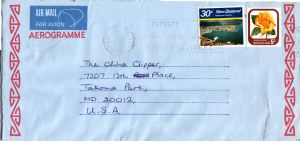 AIR MAIL
PAR AVION
AEROGRAMME
30c New Zealand
The China Clipper,
7207 13th Place,
Takoma Park,
MD 20012,
U.S.A.